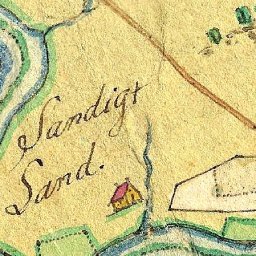 Sandigt
Sand.